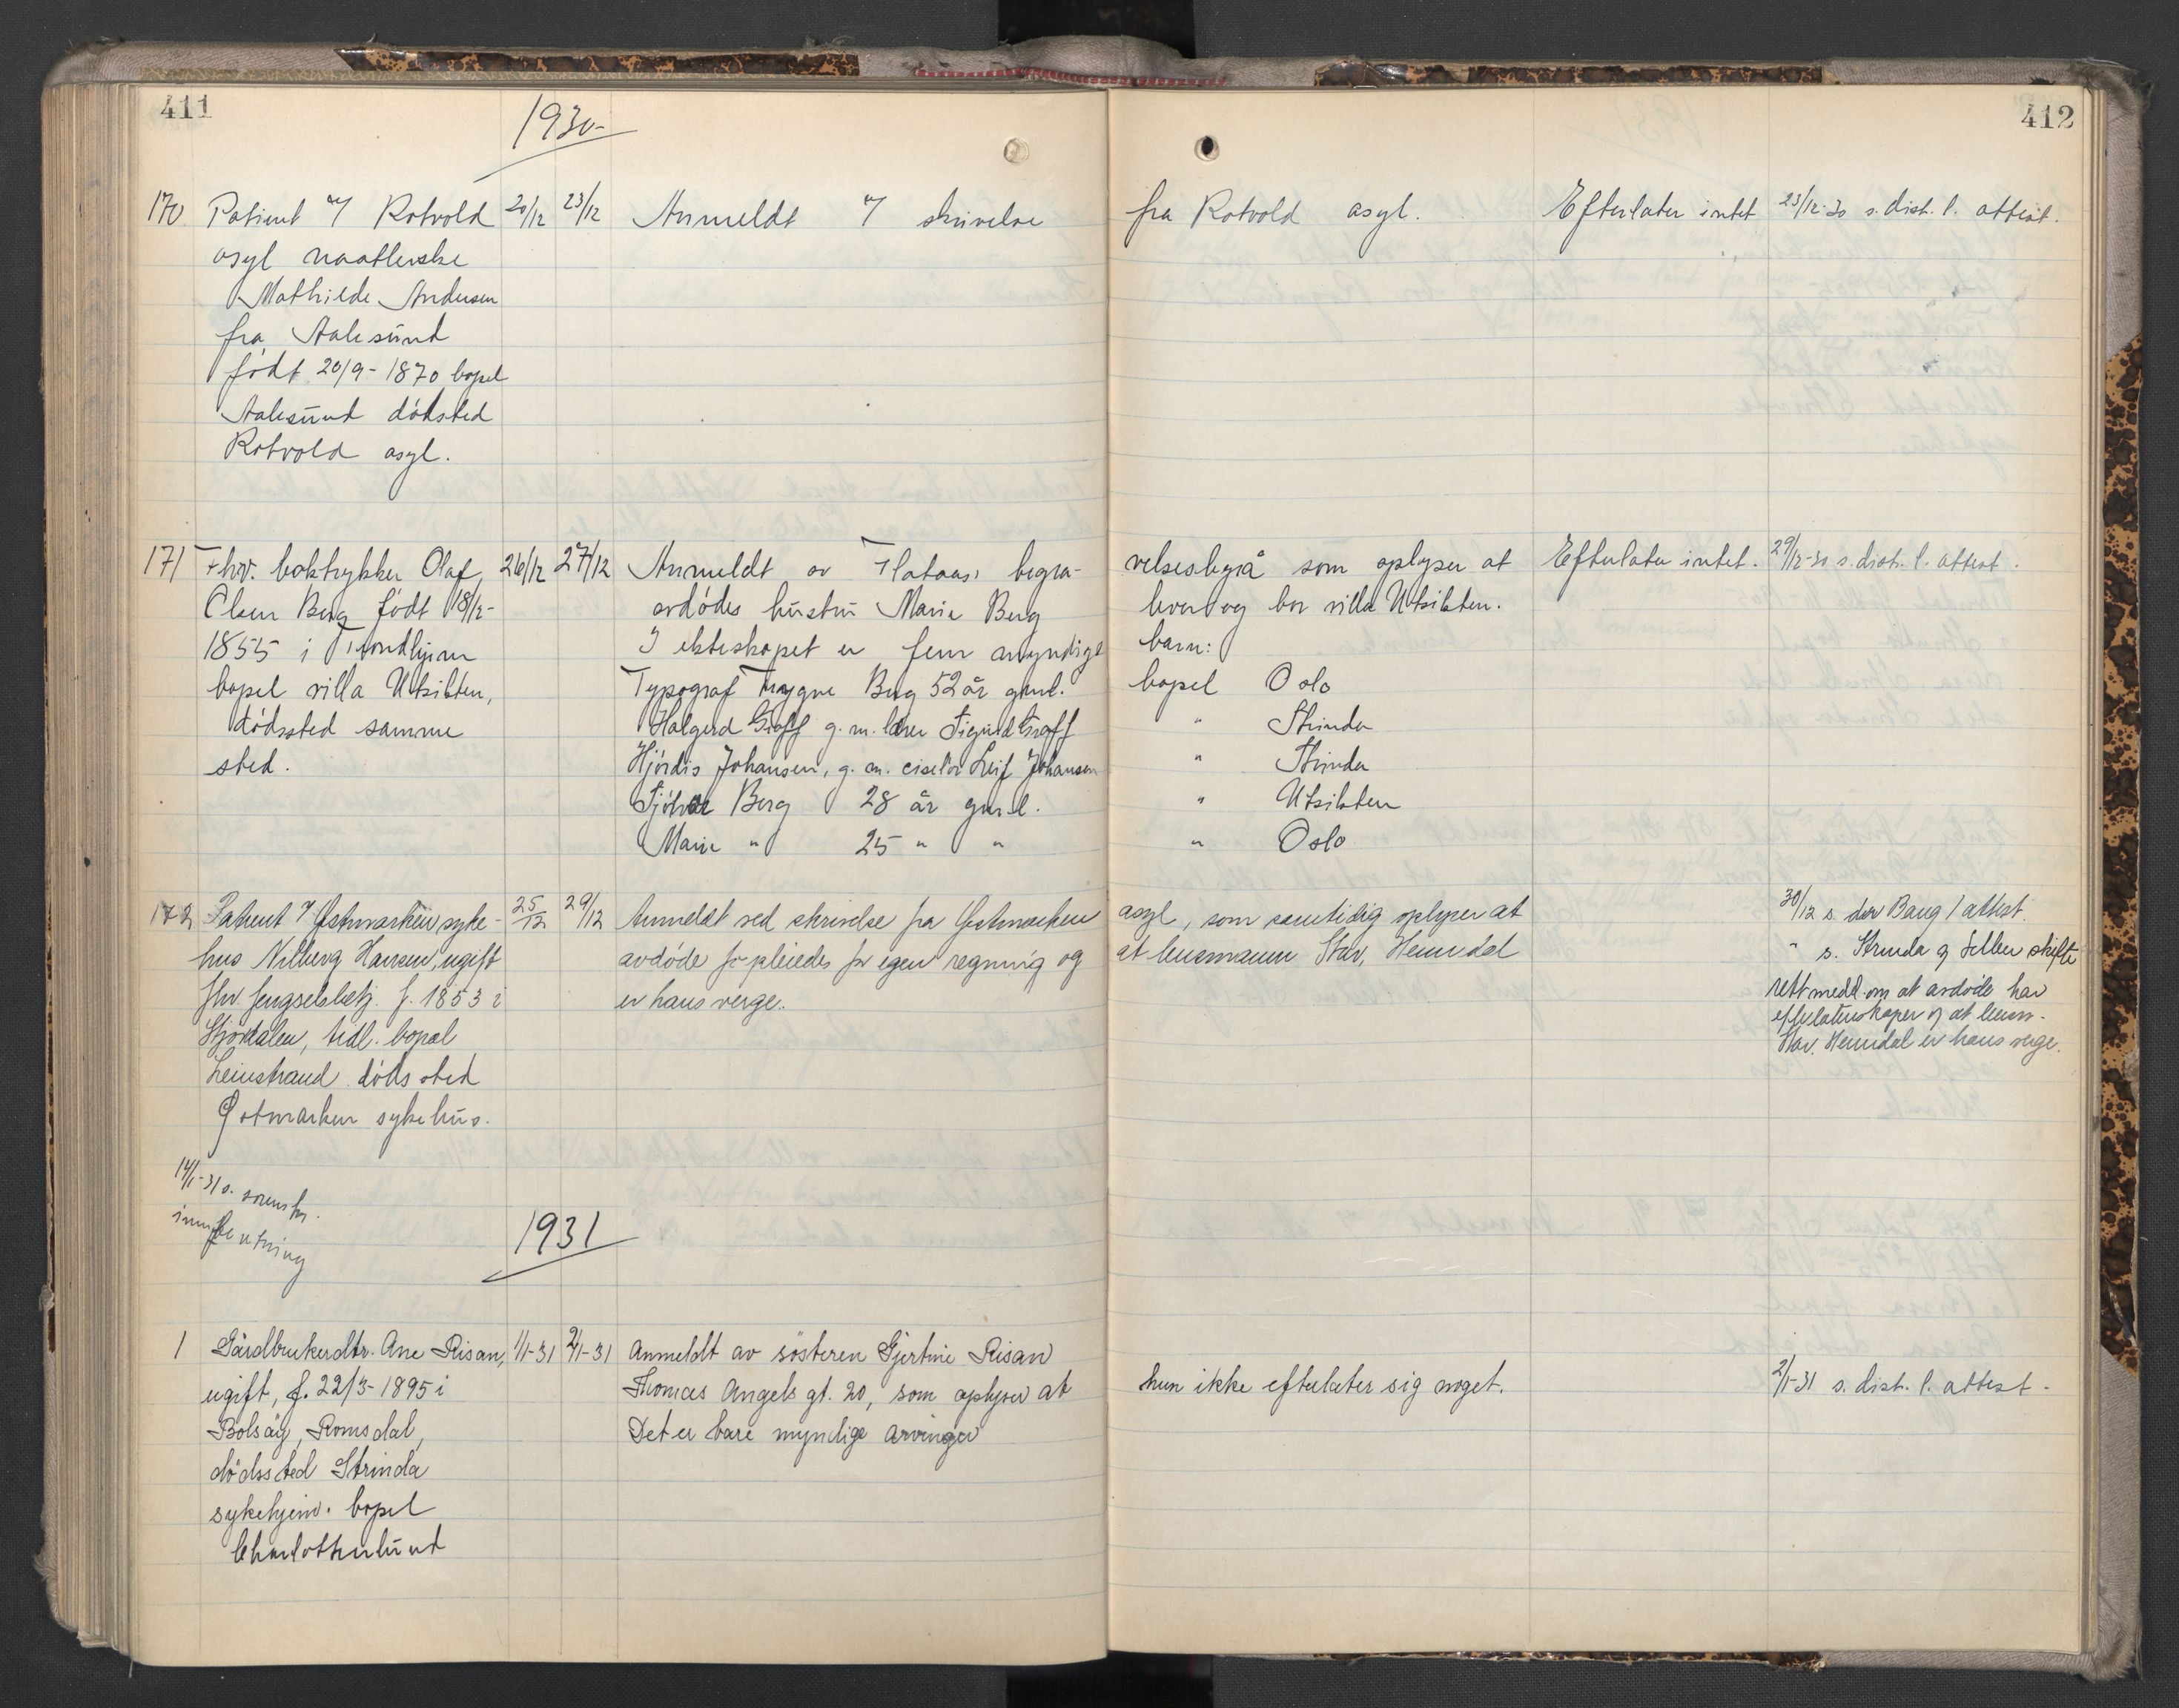 411
412
1930
170 Patient v/ Rotvold 20/12 23/12 Anmeldt v/ skrivelse fra Rotvold asyl. Efterlater intet 23/12-30 s. dist. l. attest.
asyl
Mathilde Andersen
fra Aalesund
født 20/9-1870 bopel
Aalesund dødsted
Rotvold asyl.
171 Fhv. boktrykker Olaf 26/12 27/12 Anmeldt av Flataas begra- velsesbyrå som oplyser at Efterlater intet. 29/12-30 s. dist. l. attest.
Olsen Berg født 18/12- avdødes hustru Marie Berg lever og bor villa Utsikten.
1855 i Trondhjem I ekteskapet er fem myndige barn:
bopel villa Utsikten, Typograf Trygve Berg 52 år gml. bopel Oslo
dødssted samme Halgerd Graff g. m. lærer Sigurd Graff " Strinda
sted. Hjørdis Johansen, g. m. ciselør Leif Johansen " Strinda
Berg 28 år gml. " Utsikten
Marie " 25 " " " Oslo
172 Patient v/ Østmarken syke- 25/12 29/12 Anmeldt ved skrivelse fra Østmarken asyl, som samtidig oplyser at 30/12 s. dist. l attest.
hus Hansen, ugift avdøde forpleiedes for egen regning og at lensmann Stav, Heimdal " s. Strinda og Selbu skifte
fhv. fengselsbetj. f. 1853 i er hans verge. rett medd. om at avdøde har
Stjørdalen, tidl. bopel og at lensm.
Leinstrand dødssted Stav, Heimdal er hans verge.
Østmarken sykehus.
14/1-31 s. sorenskr.
1931
1 Gårdbrukerdtr. Ane Risan, 1/1-31 2/1-31 Anmeldt av søsteren Gjertine Risan
ugift, f. 22/3-1895 i Thomas Angels gt. 20, som oplyser at hun ikke efterlater sig noget. 2/1-31 s. dist. l. attest.
Bolsøy, Romsdal, Det er bare myndige arvinger
dødssted Strinda
sykehjem. bopel
Charlottenlund